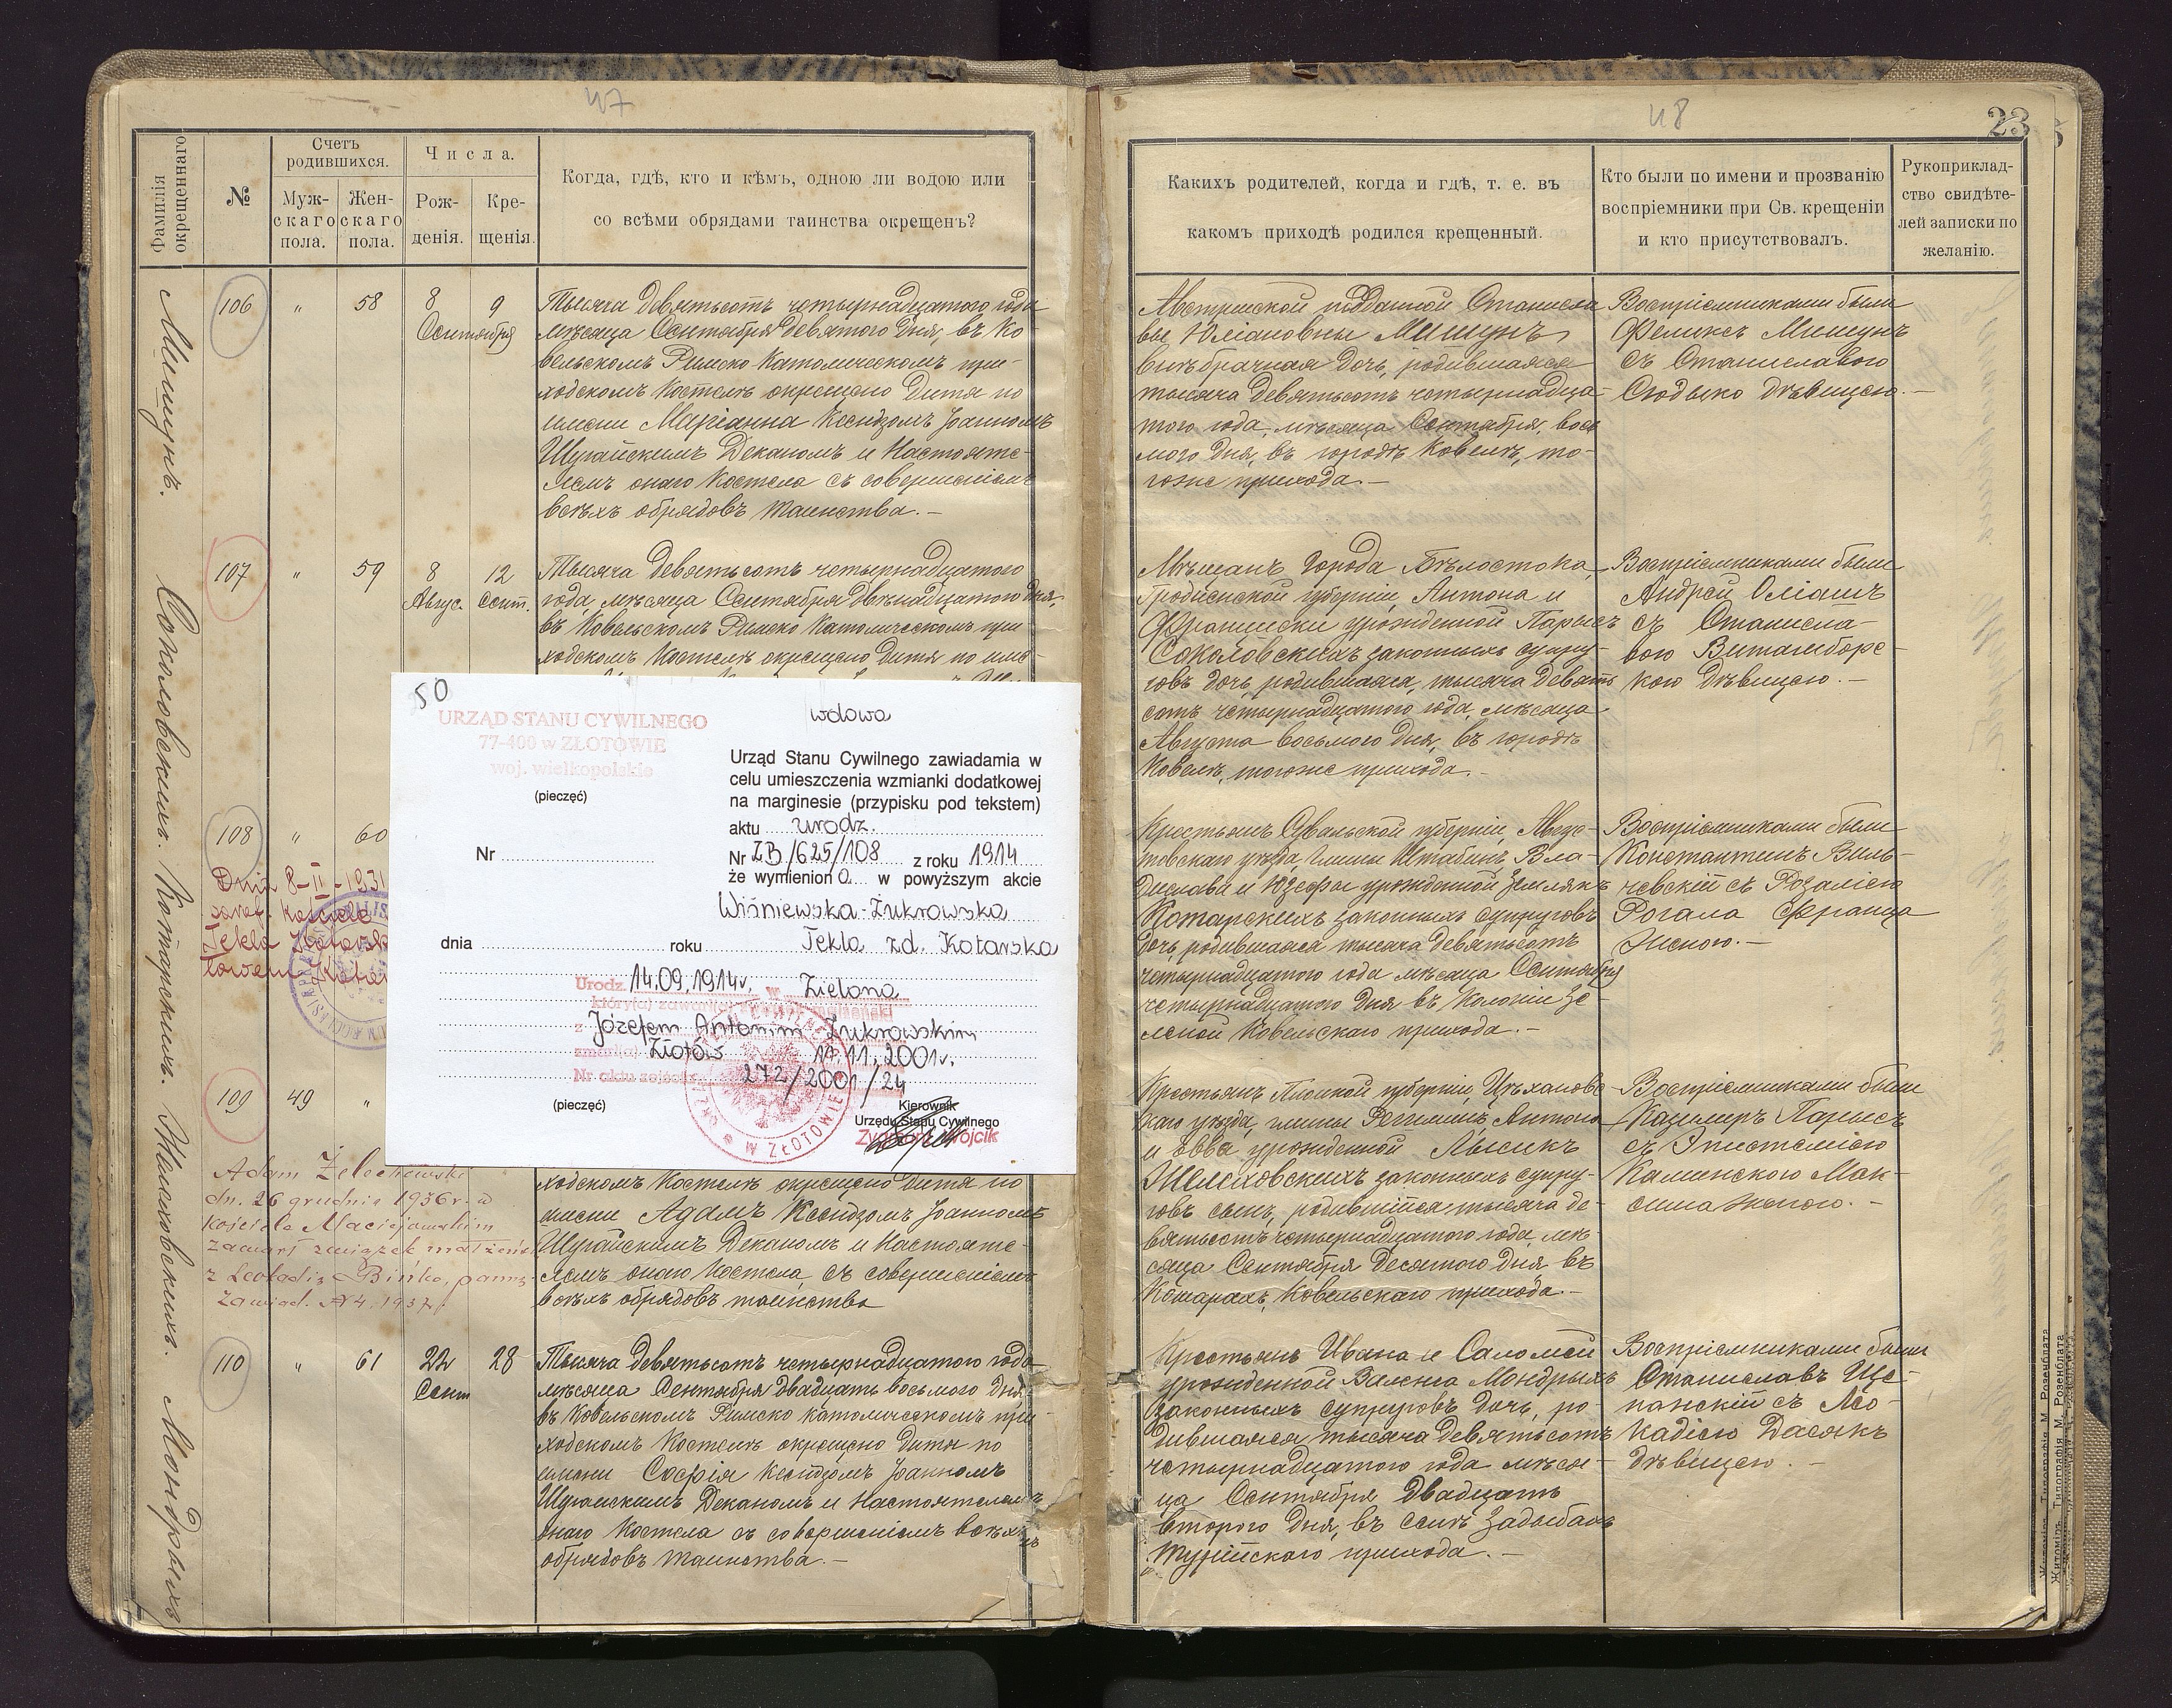 47
Фамилія окрещеннаго
№
Счетъ родившихся.
Муж-скаго пола.
Жен-скаго пола.
Числа.
Рож-денія.
Кре-щенія.
Когда, гдѣ, кто и кѣмъ, одною ли водою или
со всѣми обрядами таинства окрещенъ?
Мишунъ.
106
"
58
8
9
Сентября
Тысяча девятьсотъ четырнадцатого года
мѣсяца Сентября девятого дня, въ Ко-
вельскомъ Римско-Католическомъ при-
ходскомъ костелѣ окрещено дитя по
имени Маріанна Ксендзомъ Іоанномъ
Шурайскимъ Деканомъ и Настояте-
лемъ онаго Костела съ совершеніемъ
всѣхъ обрядовъ таинства.-
Соколовскихъ.
107
"
59
8
12
Авгус.
Сент.
Тысяча девятьсотъ четырнадцатого
года мѣсяца Сентября двѣнадцатого дня,
въ Ковельскомъ Римско Католическомъ при
ходскомъ Костелѣ окрещено дитя по име-
Котарскихъ.
108
"
60
Dnia 8-II-1931
Tekla
50
URZĄD STANU CYWILNEGO
77-400 w ZŁOTOWIE
woj. wielkopolskie
(pieczęć)
wdowa
Urząd Stanu Cywilnego zawiadamia w
celu umieszczenia wzmianki dodatkowej
na marginesie (przypisku pod tekstem)
aktu urodz.
Nr
Nr ZB/625/108 z roku 1914
że wymieniona w powyższym akcie
Wiśniewska-Żukrowska
dnia roku Tekla zd. Kotarska
Urodz. 14.09.1914r. w Zielona
z Józefem Antonim Żukrowskim
zmarł(a) Złotów 17.11.2001r.
Nr aktu zejścia 272/2001/24
(pieczęć)
Kierownik
Urzędu Stanu Cywilnego
Zygmunt Wójcik
Желеховскихъ.
109
49
"
Adam Żelechowski
dn. 26 grudnia 1936 r. w
Kościele Maciejowskim
zawarł związek małżeń
z Leokadią Bińko, panną
Zawiad. N 4. 1937 r.
ходскомъ Костелѣ окрещено дитя по
имени Адамъ Ксендзомъ Іоанномъ
Шурайскимъ Деканомъ и Настояте-
лемъ онаго Костела, съ совершеніемъ
всѣхъ обрядовъ таинства
Мондрыхъ
110
"
61
22
28
Сент
Тысяча девятьсотъ четырнадцатого года
мѣсяца Сентября двадцать восьмого дня
въ Ковельскомъ Римско католическомъ при-
ходскомъ Костелѣ окрещено дитя по
имени Софія Ксендзомъ Іоанномъ
Шурайскимъ Деканомъ и Настоятелемъ
онаго Костела съ совершеніемъ всѣхъ
обрядовъ таинства.-
48
23
Какихъ родителей, когда и гдѣ, т. е. въ
какомъ приходѣ родился крещенный.
Кто были по имени и прозванію
воспріемники при Св. крещеніи
и кто присутствовалъ.
Рукоприклад-
ство свидѣте-
лей записки по
желанію.
Австрійской подданной Станисла
вы Юліановны Мишунъ
внѣбрачная дочь, родившаяся
тысяча девятьсотъ четырнадца-
того года, мѣсяца Сентября, вось
мого дня, въ городѣ Ковелѣ, то-
гоже прихода.-
Воспріемниками были
Феликсъ Мишунъ
съ Станиславою
Сюдыко дѣвицею.-
Мѣщанъ города Бѣлостока,
Гродненской губерніи, Антона и
Францишки урожденной Парысъ
Соколовскихъ законныхъ супру-
говъ дочь, родившаяся, тысяча девять
сотъ четырнадцатого года, мѣсяца
Августа восьмого дня, въ городѣ
Ковелѣ, тогоже прихода.-
Воспріемниками были
Андрей Оліашъ
съ Станисла-
вою Витамборс-
кою дѣвицею.-
Крестьянъ Сувальской губерніи, Авгус-
товскаго уѣзда, гмины Штабинъ, Вла-
дислава и Юзефы урожденной Землякъ
Котарскихъ законныхъ супруговъ
дочь, родившаяся тысяча девятьсотъ
четырнадцатого года мѣсяца Сентября
четырнадцатого дня въ Колоніи Зе-
леной Ковельскаго прихода.-
Воспріемниками были
Константинъ Виль-
чевскій съ Розаліею
Рогала Франца
женою.-
Крестьянъ Плоцкой губерніи, Цѣхановс-
каго уѣзда, гмины Региминъ, Антона
и Евва урожденной Лысикъ
Желеховскихъ законныхъ супру-
говъ сынъ, родившійся тысяча де-
вятьсотъ четырнадцатого года, мѣ-
сяца Сентября десятого дня въ
Кошарахъ, Ковельскаго прихода.-
Воспріемниками были
Казимиръ Парысъ
съ Эпистеміею
Каминскою Мак-
сима женою.-
Крестьянъ Ивана и Саломеи
урожденной Валенга Мондрыхъ
законныхъ супруговъ дочь, ро-
дившаяся тысяча девятьсотъ
четырнадцатого года мѣся-
ца Сентября двадцать
второго дня, въ селѣ Задыбахъ
Турійскаго прихода.-
Воспріемниками были
Станиславъ Ще-
панскій съ Лео-
кадіею Дасякъ
дѣвицею.-
Житоміръ. Типографія М. Розенблата